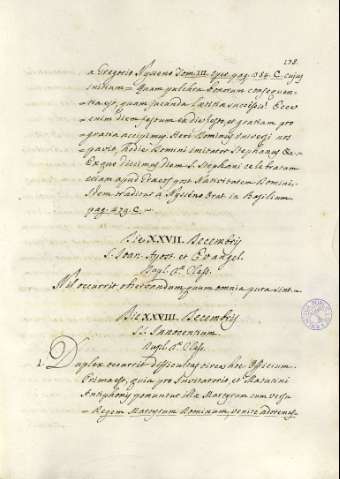 178.
a Gregorio Nysseno Tom. III. Oper. pag. 354. C. cujus
initium = Quam pulchra bonorum consequen-
tia est, quam jucunda laetitia successio! Ecce
enim diem festum ex die festo, et gratiam pro
gratia accipimus. Heri Dominus Universi nos
pavit, hodie Domini imitator Stephanus &c.
Ex quo discimus diem S. Stephani celebratam
etiam apud Graecos post Nativitatem Domini.
Idem tradit Nyssenus Orat. in Basilium
pag. 479. C. —
Die XXVII. Decembris
S. Joan. Apost. et Evangel.
Dupl. 2ae Class.
Nil occurrit observandum, quum omnia pura sint.
Die XXVIII. Decembris
SS. Innocentium
Dupl. 2ae Class.
1. Duplex occurrit difficultas circa hoc Officium.
Prima est, quia pro Invitatorio, et Matutini
Antiphonis ponuntur illae Martyrum cum versu
Regem Martyrum Dominum, venite adoremus